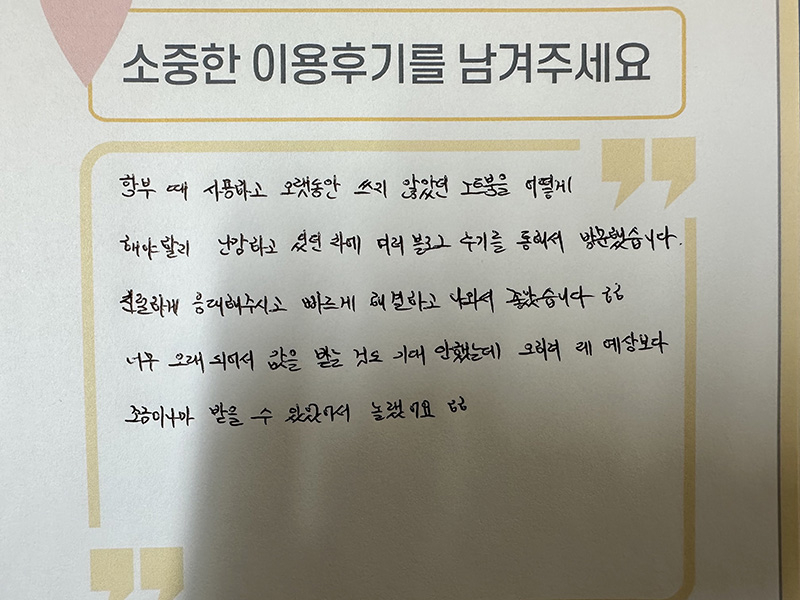 소중한 이용후기를 남겨주세요
학부 때 사용하고 오랫동안 쓰지 않았던 노트북을 어떻게
해야할지 난감하고 있던 차에 여러 블로그 후기를 통해서 방문했습니다.
친절하게 응대해주시고 빠르게 해결하고 나와서 좋았습니다 ㅎㅎ
너무 오래 되어서 값을 받는 것도 기대 안했는데 오히려 제 예상보다
조금이나마 받을 수 있었어서 놀랐어요 ㅎㅎ